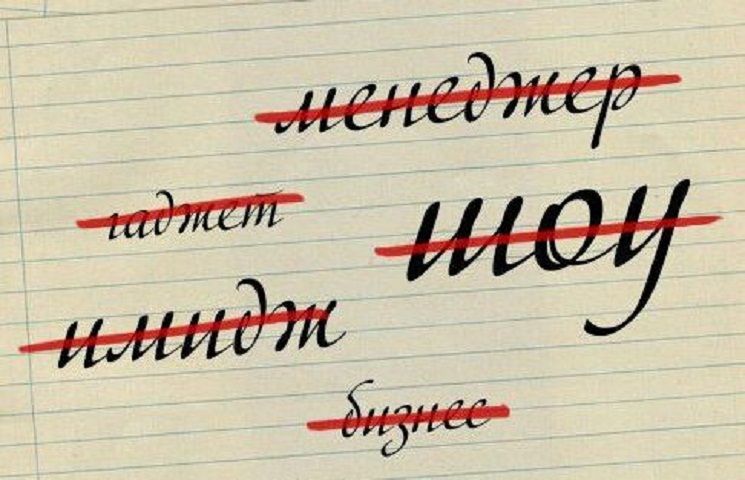 менеджер
гаджет
шоу
имидж
бизнес